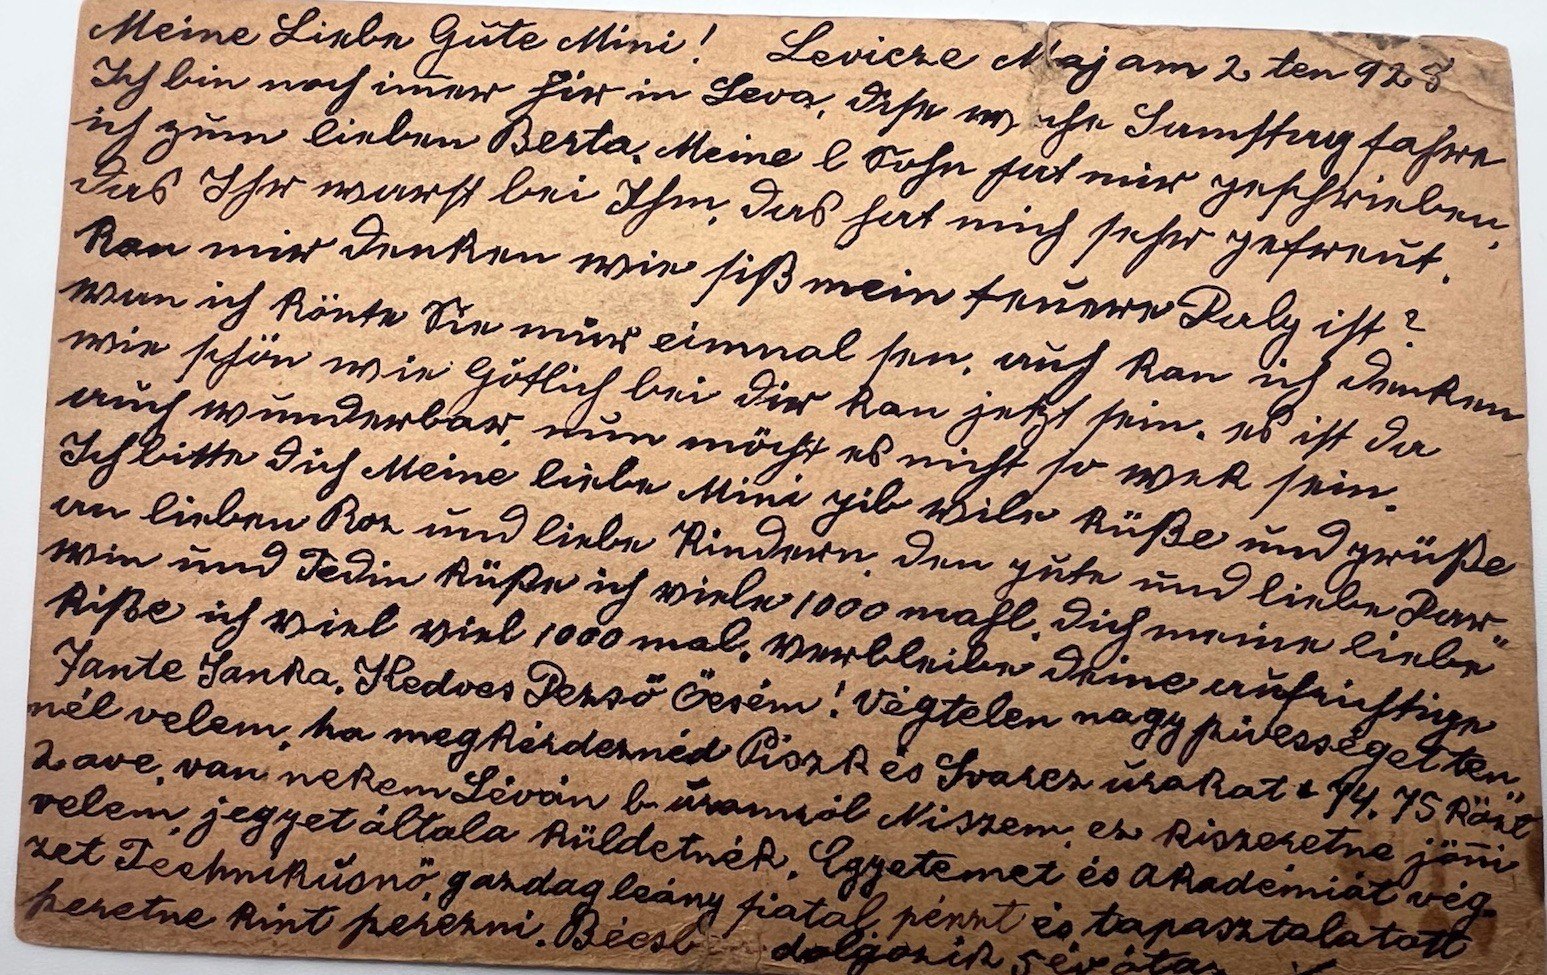 Meine Liebe Gute Mini! Levicze Maj am 2 ten 923
Ich bin noch imer hir in Leva, diese woche Samstag fahre
ich zum lieben Berta. Meine l Sohn hat mir geschrieben,
das Ihr warst bei Ihm, das hat mich sehr gefreut.
Kan mir denken wie siß mein teuere Paly ist?
wan ich könte Sie nur eimnal sen, auch kan ich denken
wie schön wie Götlich bei dir kan jetzt sein. es ist da
auch wunderbar, nun möcht es nicht so wek sein.
Ich bitte dich Meine liebe Mini gib wile küße und grüße
an lieben Roz und liebe Kindern, den gute und liebe Par„
win und Tedin küße ich viele 1000 mahl. dich meine liebe
kiße ich viel viel 1000 mal. verbleibe deine aufrichtige
Tante Janka. Kedves Perső Öcsém! Végtelen nagy szivességet ten„
nél velem, ha megkérdeznéd Piszk és Svarcz úrakat 74. 75 Közt
van nekem Léván b. uramról Niszem, ez kiszeretne jönni
velem, jegyet általa küldetnék. Egyetemet és akadémiát vég„
zet Technikusnő, gazdag leány fiatal, pénzt és tapasztalatott
szeretne kint szerezni. Bécsben dolgozik 5 év óta